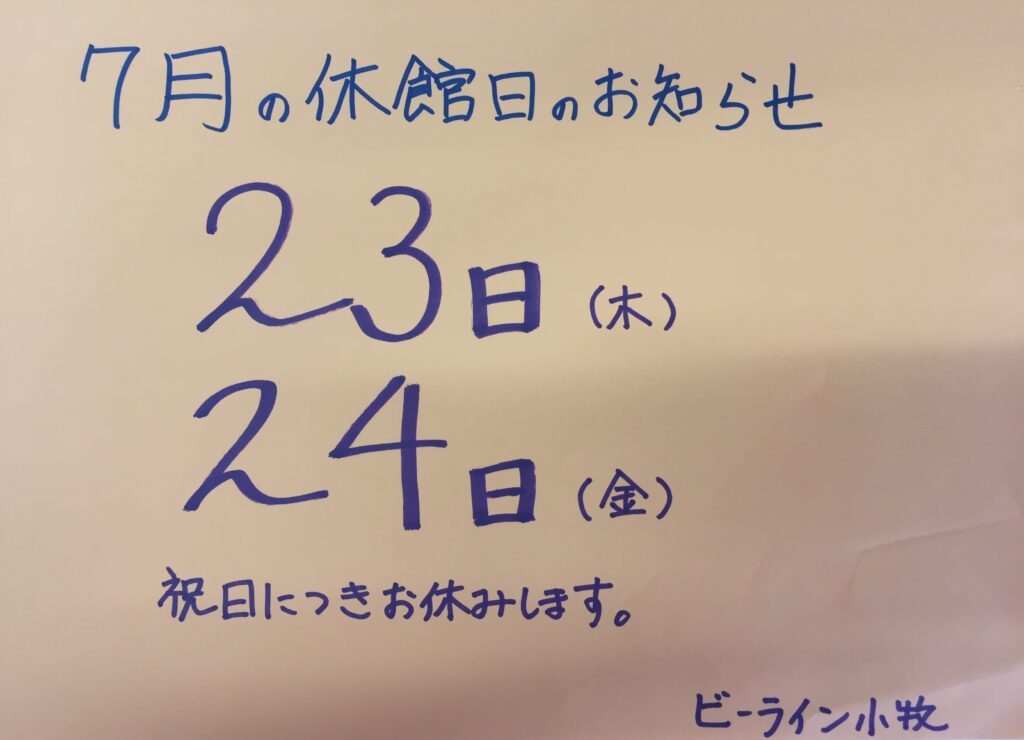 7月の休館日のお知らせ
23日(木)
24日(金)
祝日につきお休みします。
ビーライン小牧